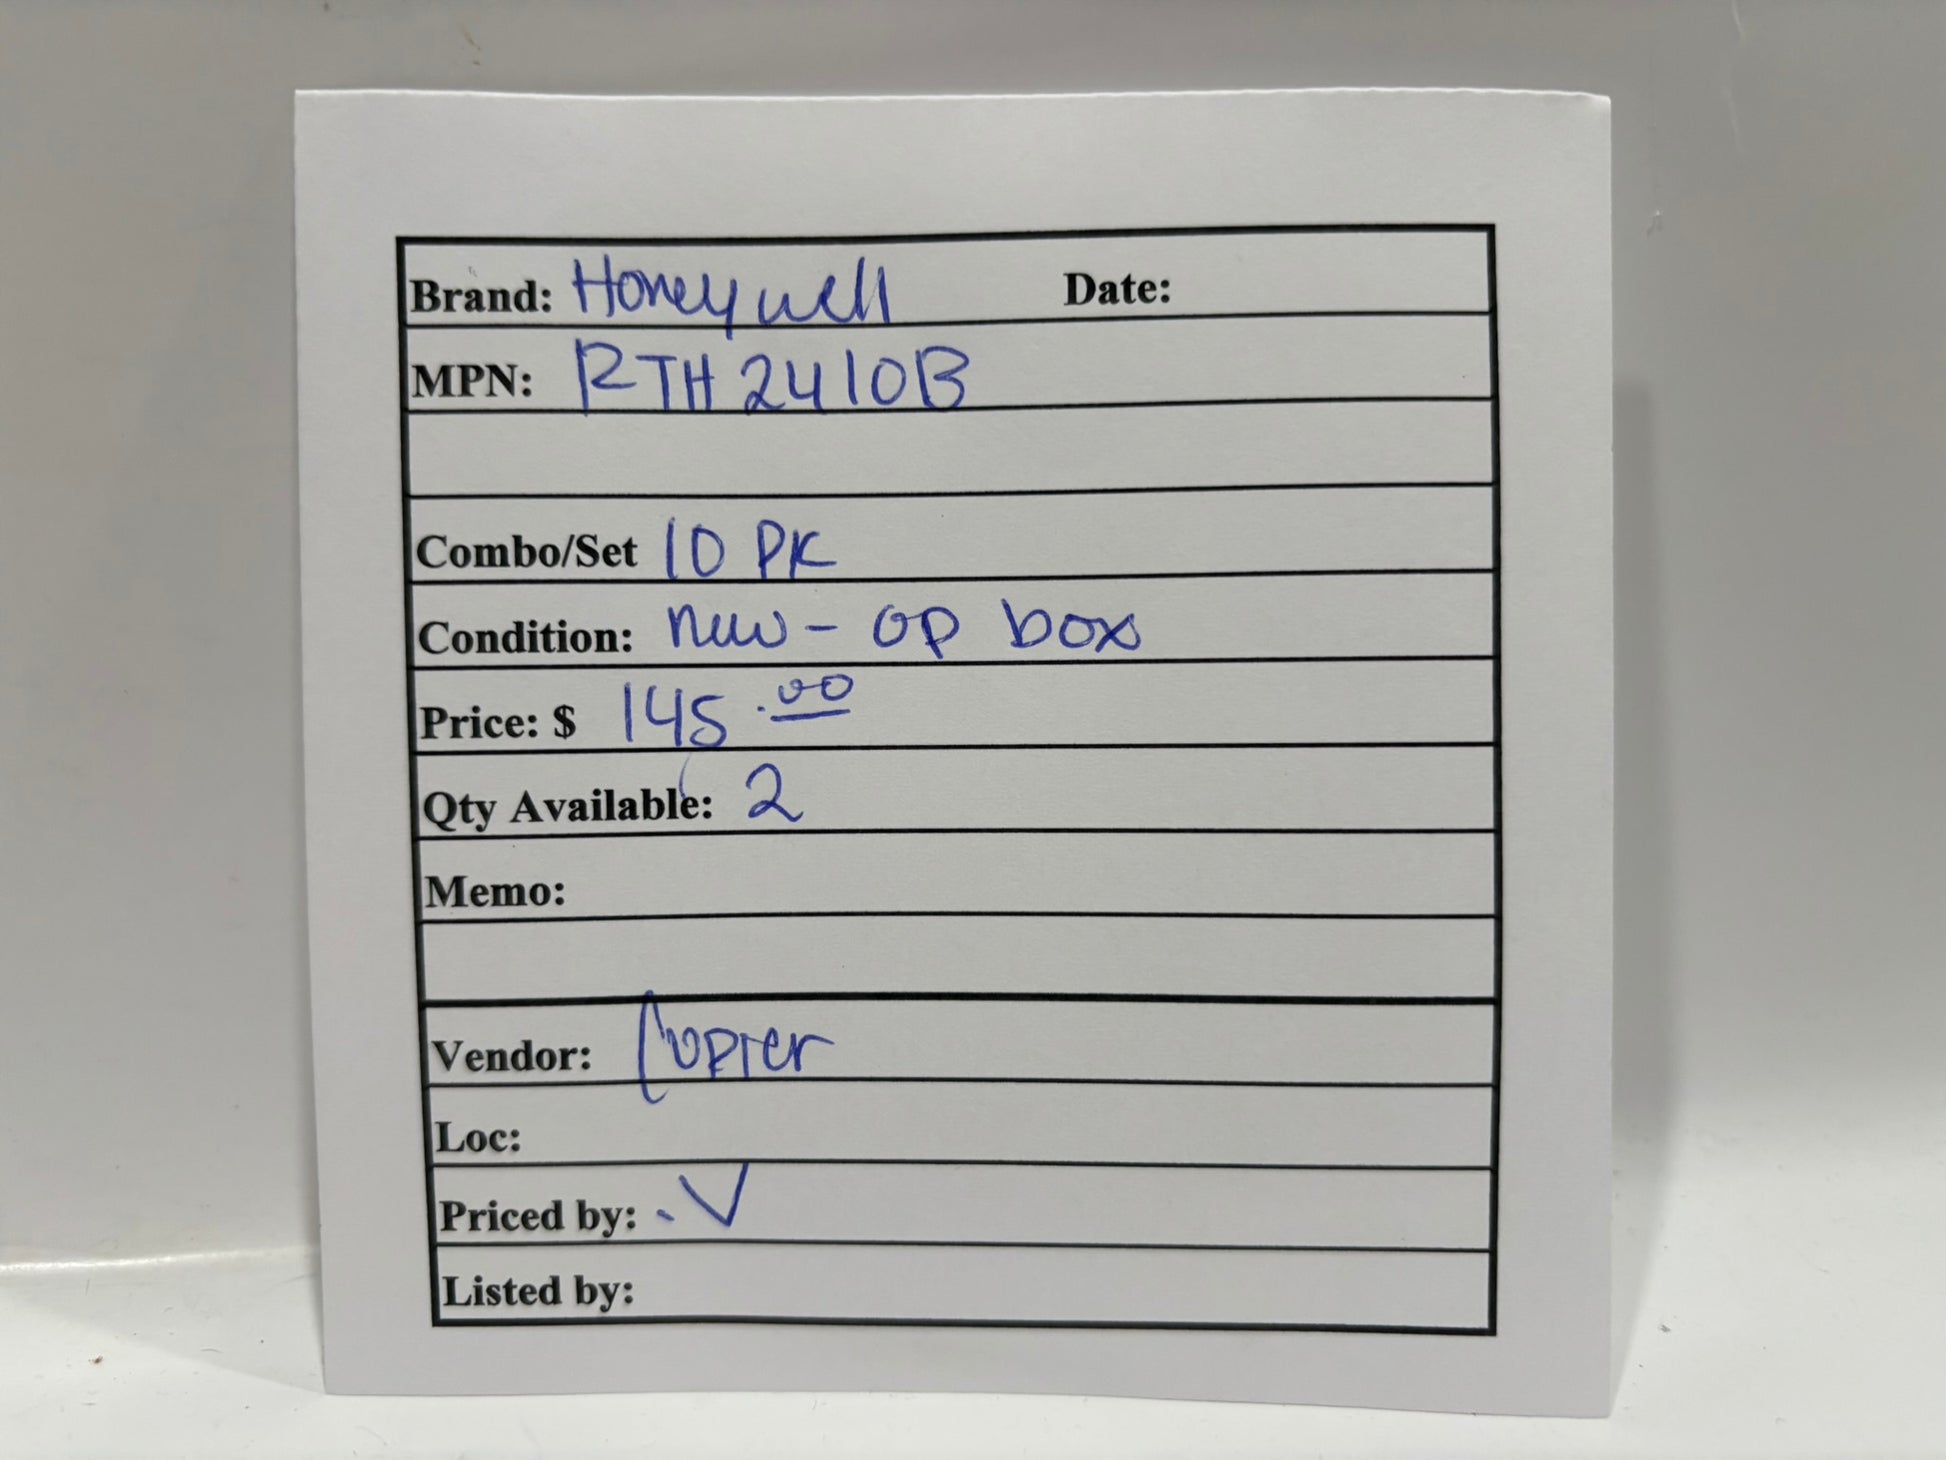 Brand: Honeywell Date:
MPN: RTH2410B
Combo/Set 10 PK
Condition: new - op box
Price: $ 145.00
Qty Available: 2
Memo:
Vendor: Copier
Loc:
Priced by: .V
Listed by: